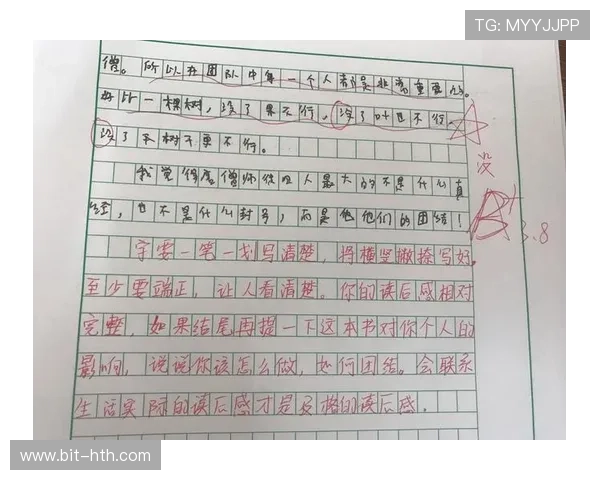 TG: MYYJJPP
僧。所以在团队中每一个人都是非常重要的。
好比一棵树，没了果不行，没了叶也不行，
没了树干更不行。
我觉得唐僧师徒四人最大的不是什么真
经，也不是什么封号，而是他们的团结！
没
B+
3.8
字要一笔一划写清楚，将横竖撇捺写好。
至少要端正，让人看清楚。你的读后感相对
完整，如果结尾再提一下这本书对你个人的
影响，说说你该怎么做，如何团结。会联系
生活实际的读后感才是及格的读后感。
www.bit-hth.com